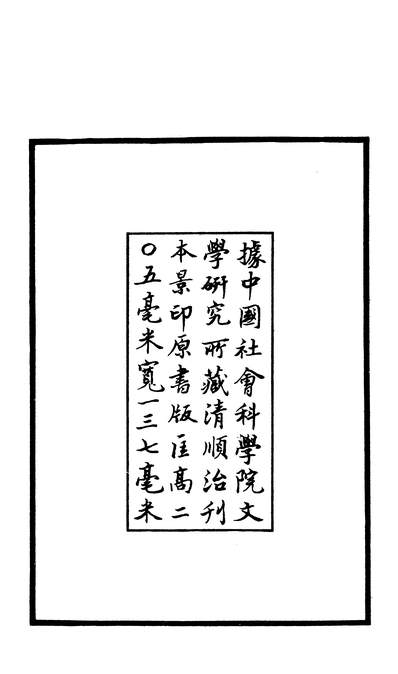 據中國社會科學院文
學研究所藏清順治刊
本景印原書版匡高二
〇五毫米寬一三七毫米